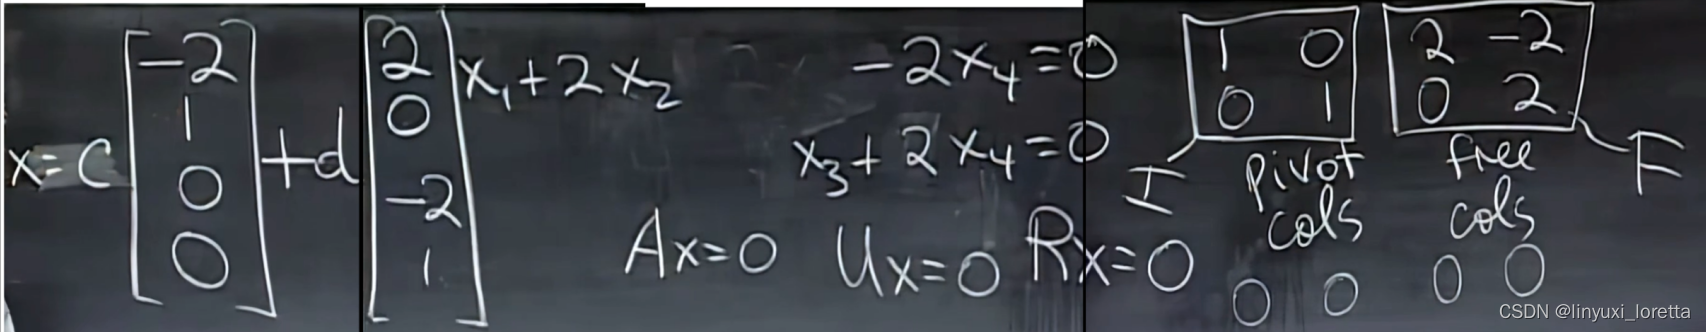 x = c [-2 1 0 0] + d [2 0 -2 1]
x₁ + 2x₂ -2x₄ = 0
x₃ + 2x₄ = 0
Ax=0 Ux=0 Rx=0
1 0 2 -2
0 1 0 2
I pivot cols free cols F
0 0 0 0
CSDN @linyuxi_loretta